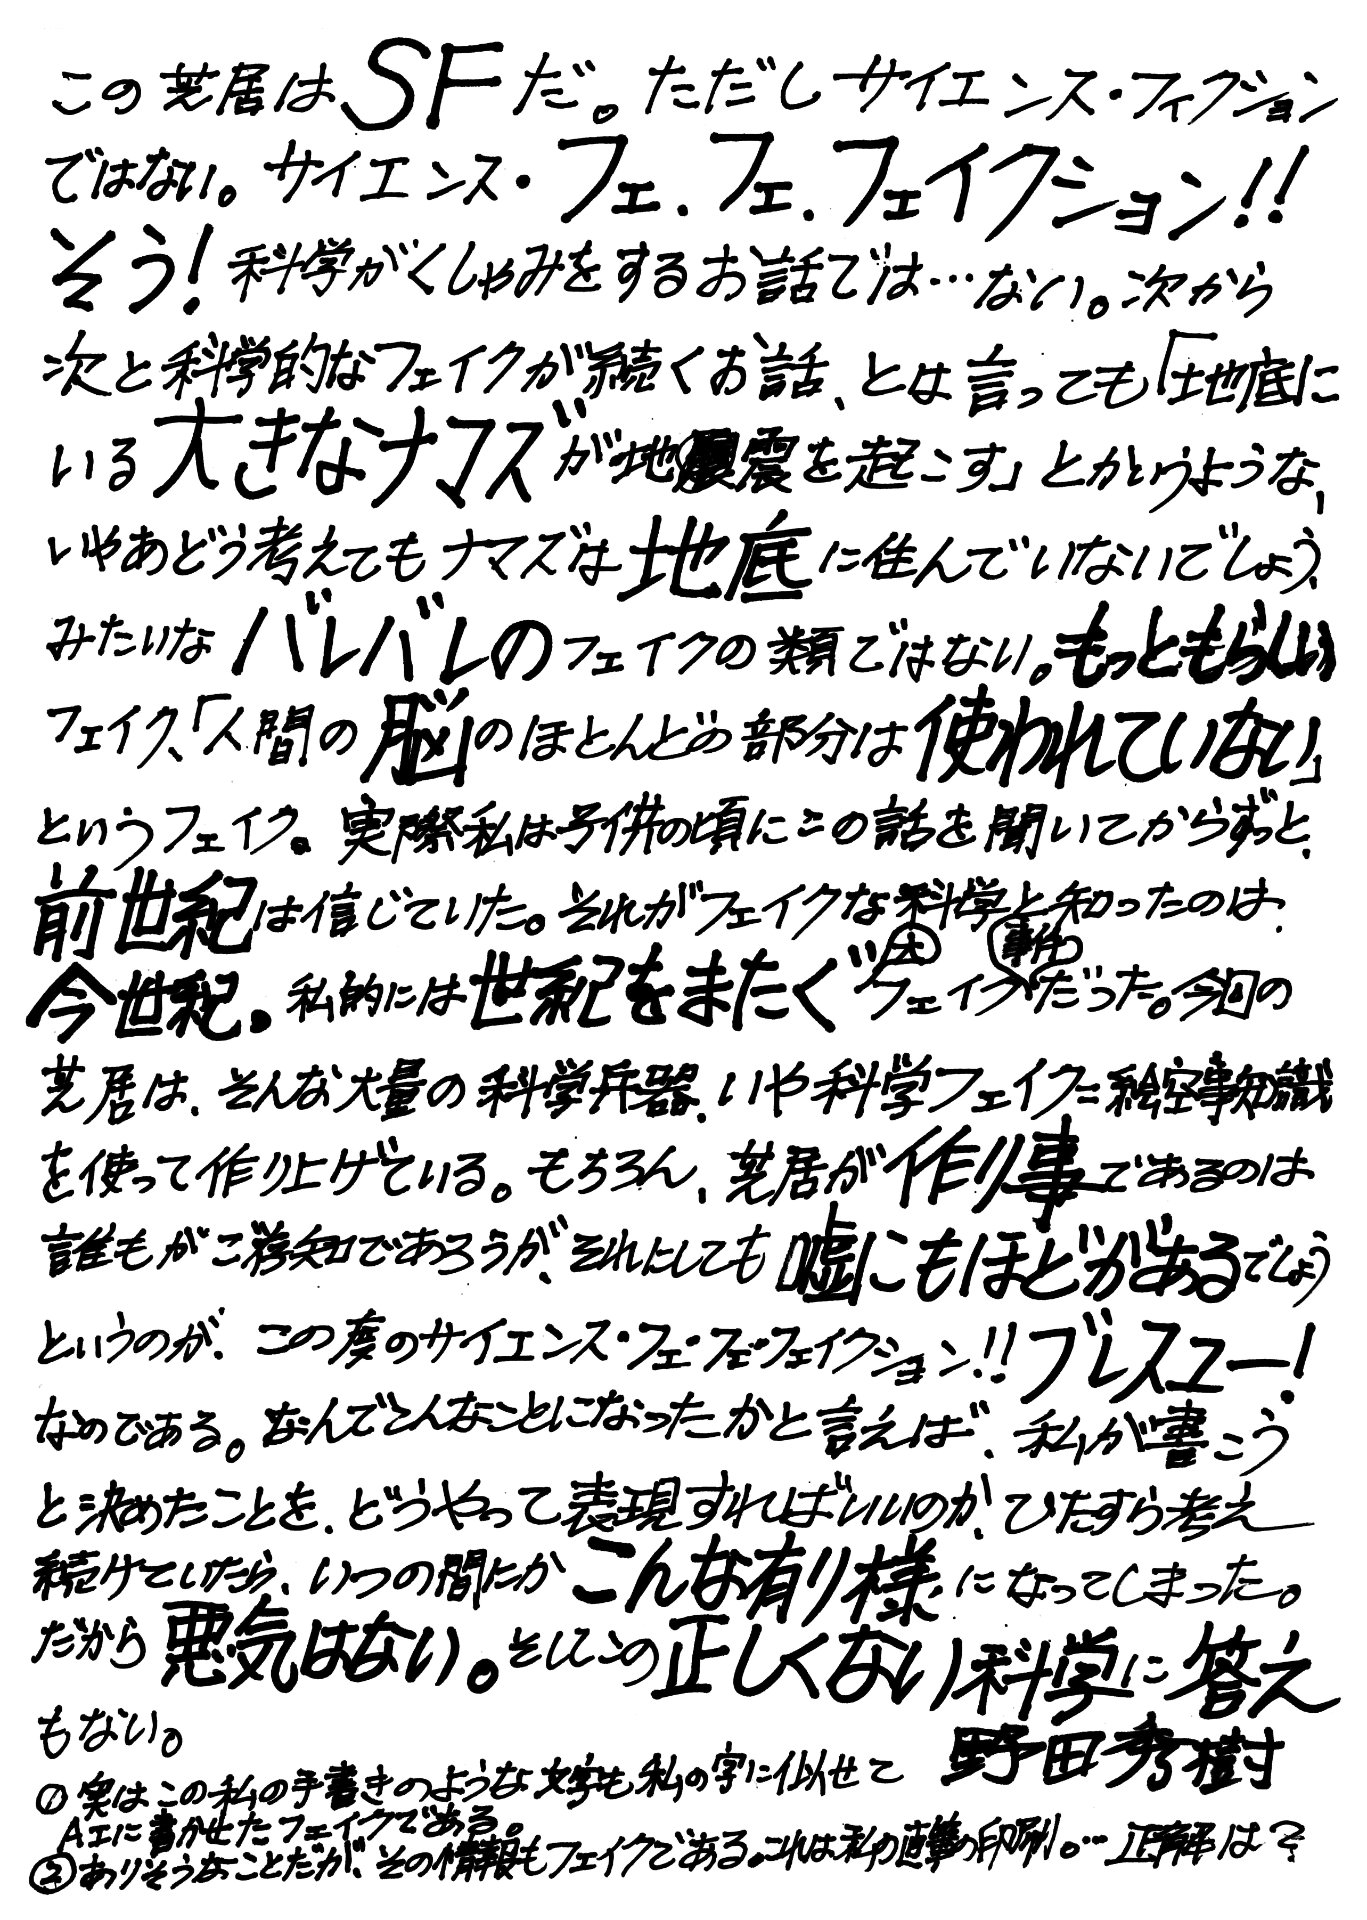 この芝居はSFだ。ただしサイエンス・フィクション
ではない。サイエンス・フェ、フェ、フェイクション!!
そう!科学がくしゃみをするお話では…ない。次から
次と科学的なフェイクが続くお話、とは言っても「地底に
いる大きなナマズが地震を起こす」とかいうような、
いやあどう考えてもナマズは地底に住んでいないでしょう、
みたいなバレバレのフェイクの類ではない。もっともらしい
フェイク、「人間の脳のほとんどの部分は使われていない」
というフェイク。実際私は子供の頃にこの話を聞いてからずっと、
前世紀は信じていた。それがフェイクな科学と知ったのは、
今世紀。私的には世紀をまたぐ大フェイク事件だった。今回の
芝居は、そんな大量の科学兵器、いや科学フェイク=絵空事知識
を使って作り上げている。もちろん、芝居が作り事であるのは
誰もがご承知であろうが、それにしても嘘にもほどがあるでしょう
というのが、この度のサイエンス・フェ・フェ・フェイクション!!ブレスユー!
なのである。なんでこんなことになったかと言えば、私が書こう
と決めたことを、どうやって表現すればいいのか、ひたすら考え
続けていたら、いつの間にかこんな有り様になってしまった。
だから悪気はない。そしてこの正しくない科学に答え
もない。
野田秀樹
① 実はこの私の手書きのような文字も私の字に似せて
AIに書かせたフェイクである。
② ありそうなことだが、その情報もフェイクである。これは私の直筆の印刷。…正解は?